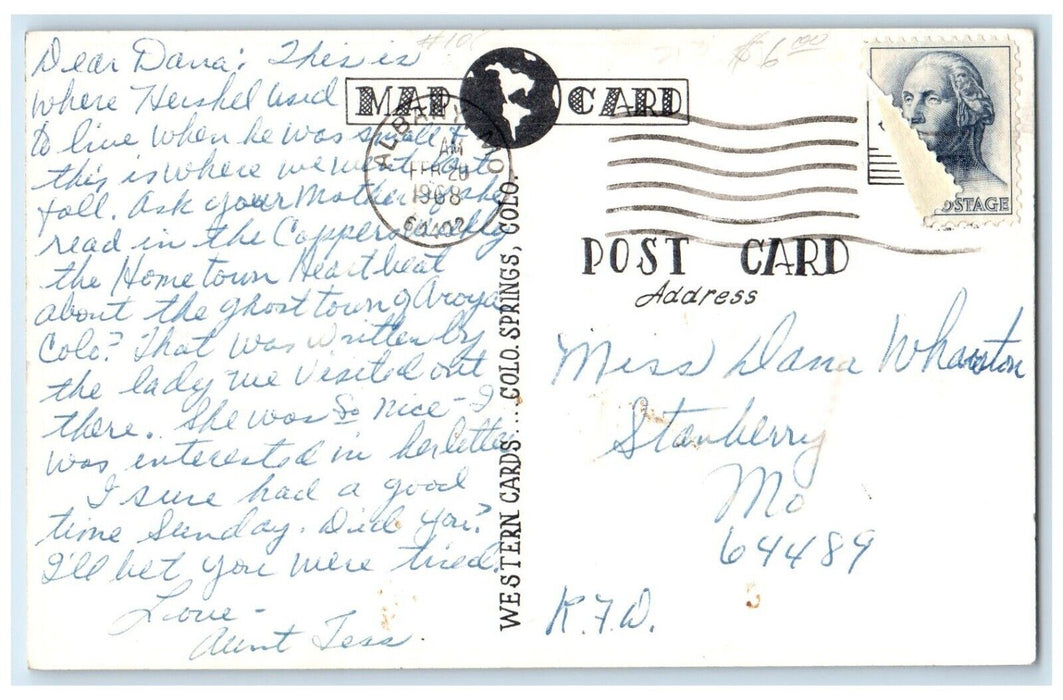 #10
$6.00
Dear Dana: This is
where Hershel used
to live when he was small &
this is where we went last
fall. Ask your Mother if she
read in the Cappers Weekly
the Home town Heartbeat
about the ghost town of Aroya
Colo? That was written by
the lady we visited out
there. She was So nice - I
was interested in her letter
I sure had a good
time Sunday. Did you?
I'll bet you were tired.
Love -
Aunt Tess
MAP CARD
ALBANY, MO.
AM
FEB 20
1968
64402
POSTAGE
POST CARD
Address
Miss Dana Wharton
Stanberry
Mo
64489
R.F.D.
WESTERN CARDS....COLO. SPRINGS, COLO.